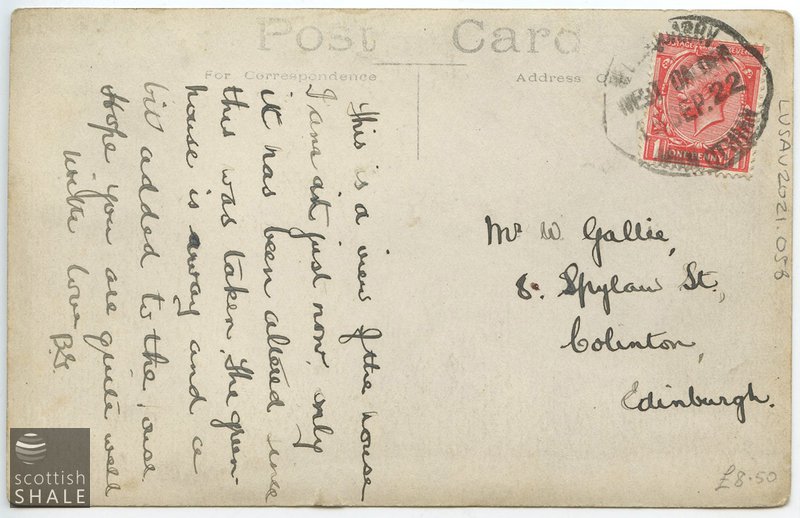 Post Card
For Correspondence
Address O
This is a view of the house
I am at just now, only
it has been altered since
this was taken. The green-
house is away and a
bit added to the
Hope you are quite well
with love
B.G.
WEST CALDER
SEP. 22
POSTAGE
REVENUE
ONE PENNY
Mr W Gallie,
8. Spylaw St.,
Colinton,
Edinburgh.
LVSAV2021.058
£8.50
scottish
SHALE